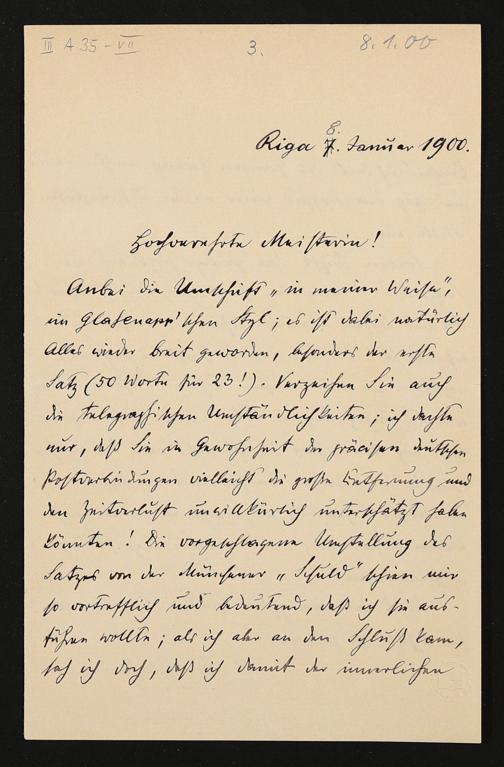 III A 35 - VII
3.
8.1.00
8.
Riga 7. Januar 1900.
Hochverehrte Meisterin!
Anbei die Umschrift „in meiner Weise",
im Glasenapp'schen Styl; es ist dabei natürlich
Alles wieder breit geworden, besonders der erste
Satz (50 Worte für 23!). Verzeihen Sie auch
die telegraphischen Umständlichkeiten; ich dachte
nur, daß Sie in Gewohnheit der präcisen deutschen
Postverbindungen vielleicht die große Entfernung und
den Zeitverlust unwillkürlich unterschätzt haben
könnten! Die vorgeschlagene Umstellung des
Satzes von der Münchener „Schuld" schien mir
so vortrefflich und bedeutend, daß ich sie aus-
führen wollte; als ich aber an den Schluß kam,
sah ich doch, daß ich damit der innerlichen